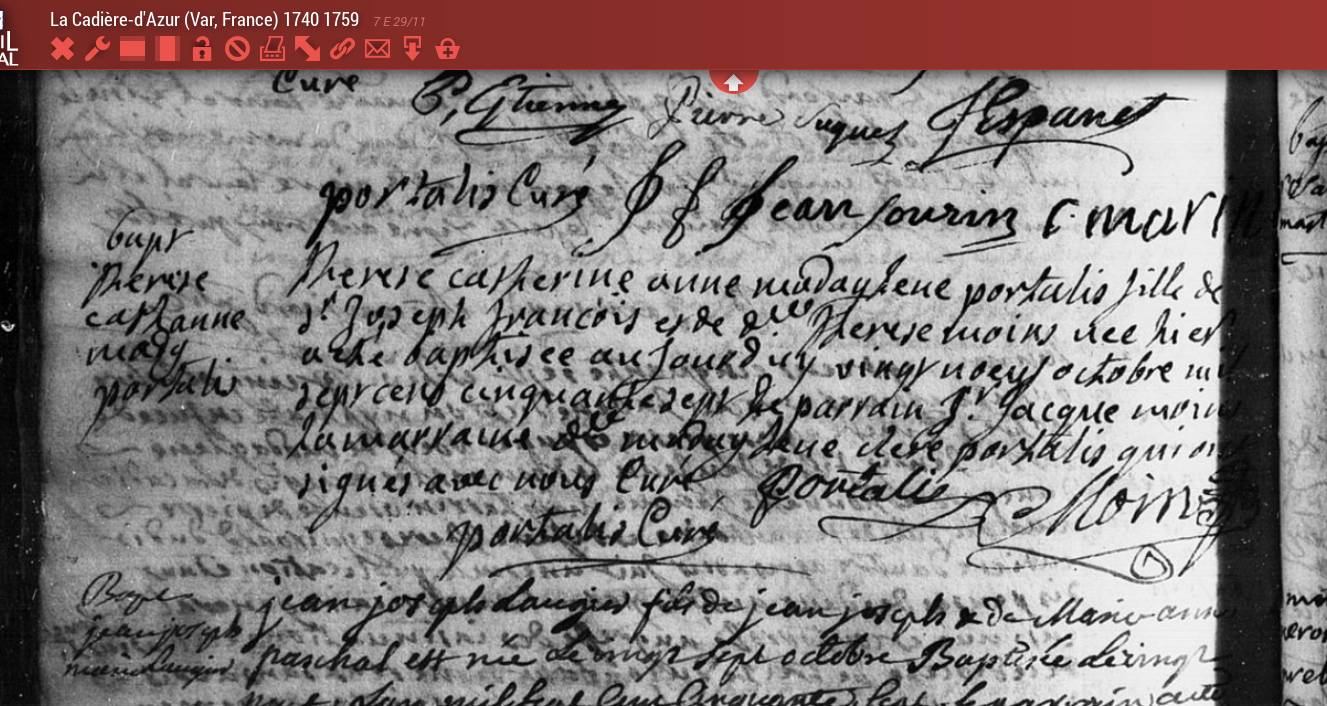 La Cadière-d'Azur (Var, France) 1740 1759 7 E 29/11
Curé
P, Etienne Pierre Espanet
portalis Curé Jean Jourdin
bapt
therese
cath anne
madg
portalis
therese catherine anne madaylene portalis fille de
sr Joseph francois et de dlle therese moins nee hier
a été baptisee aujourdhuy vingt neuf octobre mil
sept cens cinquante sept le parrain Sr Jacque moins
la marraine dlle madaylene clere portalis qui ont
signés avec nous Curé portalis Moins
portalis Curé
Bapt
jean joseph
laugier
jean joseph laugier fils de jean joseph & de Marie anne
paschal est née le vingt sept octobre Baptisée le vingt
mil sept cens cinquante sept le parrain